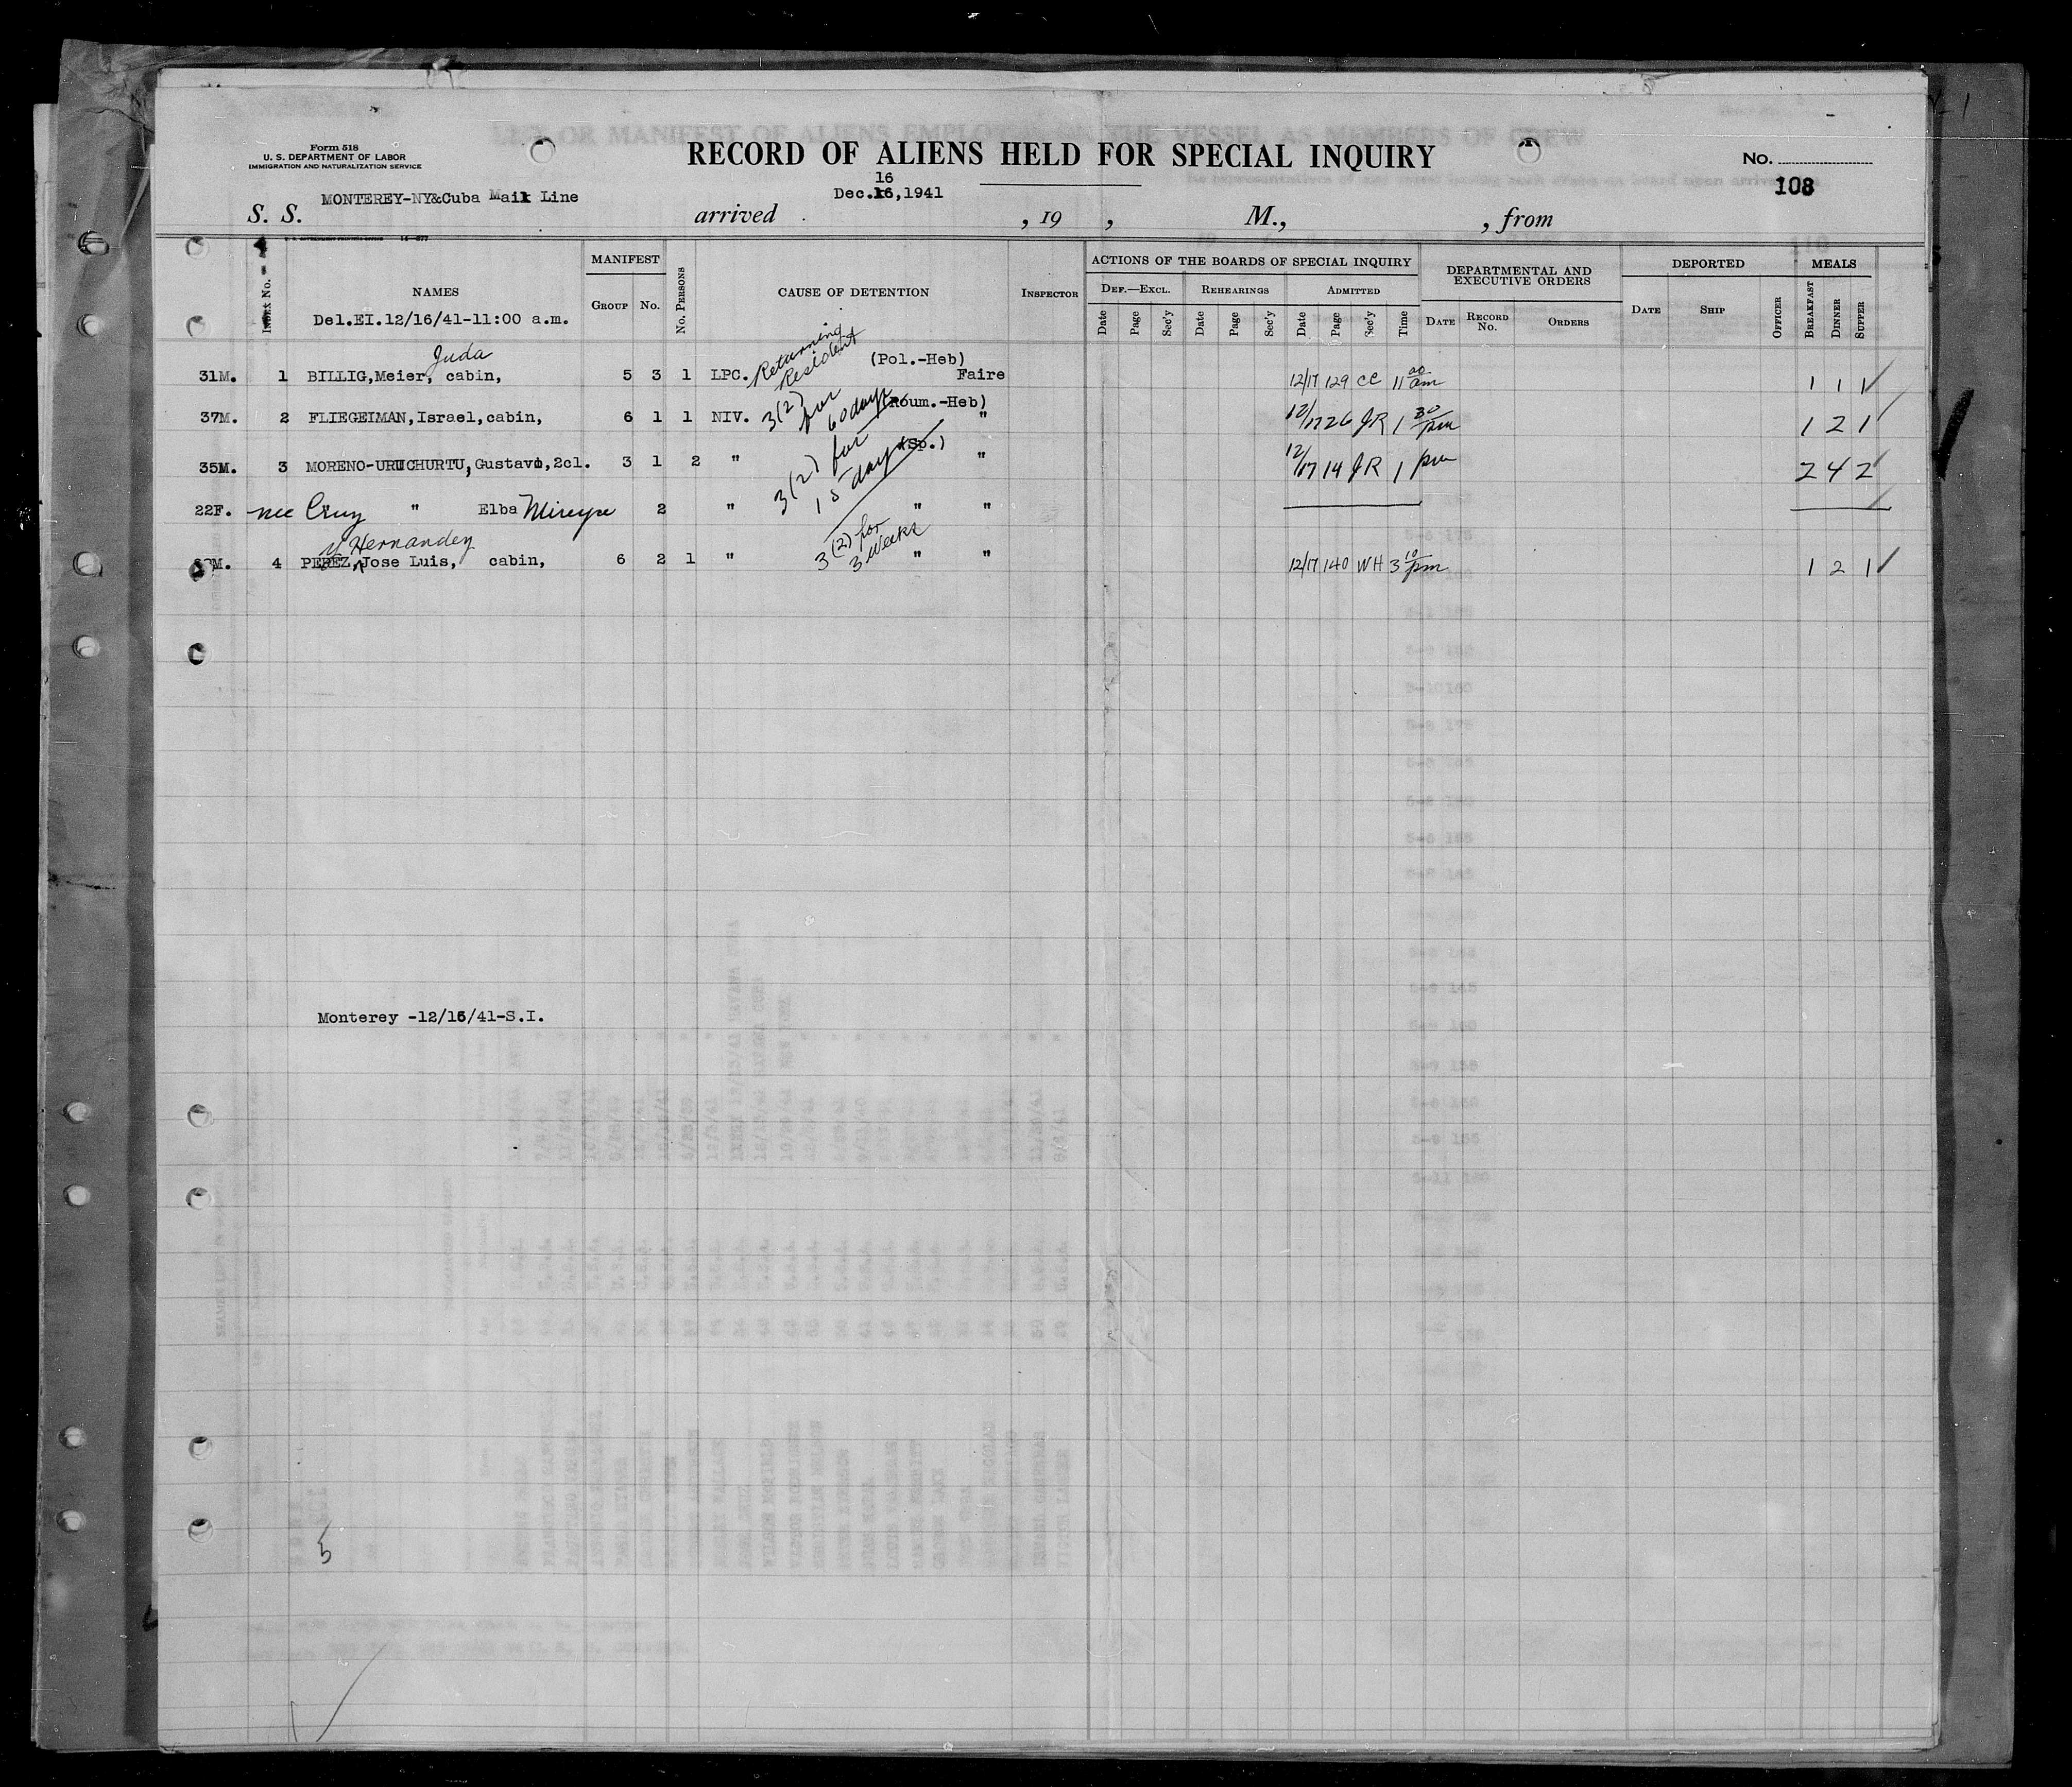 Form 518
U. S. DEPARTMENT OF LABOR
IMMIGRATION AND NATURALIZATION SERVICE
RECORD OF ALIENS HELD FOR SPECIAL INQUIRY
No.
108
S. S. MONTEREY-NY&Cuba Mail Line arrived Dec.16,1941 16 , 19 , M., , from
Index No. NAMES MANIFEST Group No. No. Persons CAUSE OF DETENTION Inspector ACTIONS OF THE BOARDS OF SPECIAL INQUIRY DEPARTMENTAL AND EXECUTIVE ORDERS DEPORTED MEALS
Def.—Excl. Rehearings Admitted
Date Page Sec'y Date Page Sec'y Date Page Sec'y Time Date Record No. Orders Date Ship Officer Breakfast Dinner Supper
Del.EI.12/16/41-11:00 a.m.
Juda
31M. 1 BILLIG,Meier, cabin, 5 3 1 LPC. Returning Resident (Pol.-Heb) Faire 12/17 129 CC 11 00 am 1 1 1
37M. 2 FLIEGEIMAN,Israel,cabin, 6 1 1 NIV. 3(2) for 60 days (Roum.-Heb) " 12/17 26 JR 1 30 pm 1 2 1
35M. 3 MORENO-URUCHURTU,Gustavo,2cl. 3 1 2 " 3(2) for 15 days (Sp.) " 12/17 14 JR 1 pm 2 4 2
22F. nee Cruz " Elba Mireya 2 " " "
y Hernandez
M. 4 PEREZ, Jose Luis, cabin, 6 2 1 " 3(2) for 3 weeks " " 12/17 140 WH 3 10 pm 1 2 1
Monterey -12/16/41-S.I.
5